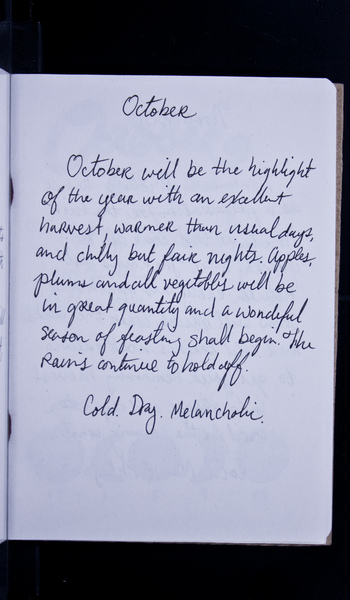 October
October will be the highlight
of the year with an excellent
harvest, warmer than usual days,
and chilly but fair nights. Apples,
plums and all vegetables will be
in great quantity and a wonderful
season of feasting shall begin. The
Rains continue to hold off.
Cold. Dry. Melancholic.